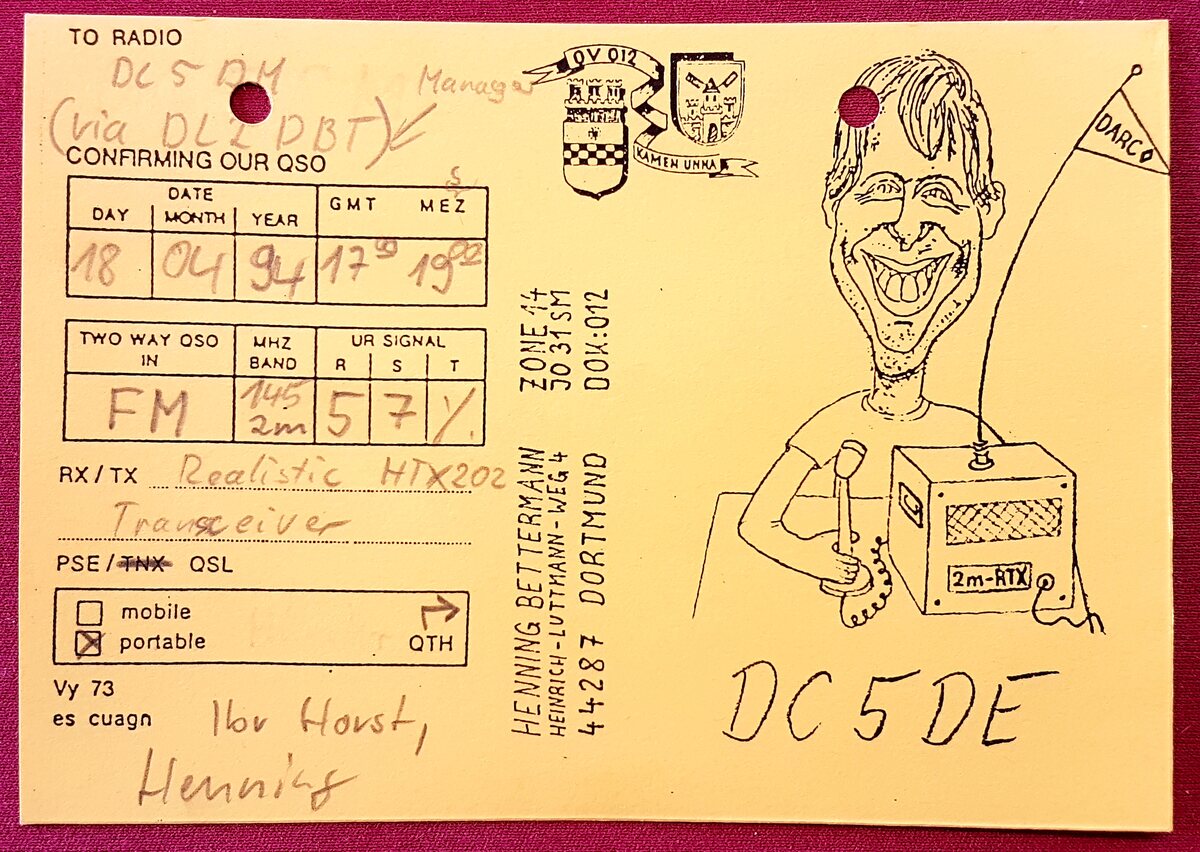 TO RADIO
DC 5 DM Manager
(via DL2 DBT)
CONFIRMING OUR QSO
DATE
DAY MONTH YEAR GMT MEZ
S
18 04 94 17 00 19 00
TWO WAY QSO IN
MHZ BAND
UR SIGNAL
R S T
FM 145 2m 5 7 /.
RX/TX Realistic HTX202
Transceiver
PSE/TNX QSL
mobile
portable QTH
Vy 73
es cuagn
lbr Horst,
Henning
OV O12
KAMEN UNNA
ZONE 14
JO 31 SM
DOK:O12
HENNING BETTERMANN
HEINRICH-LUTTMANN-WEG 4
44287 DORTMUND
DARC
2m-RTX
DC 5 DE